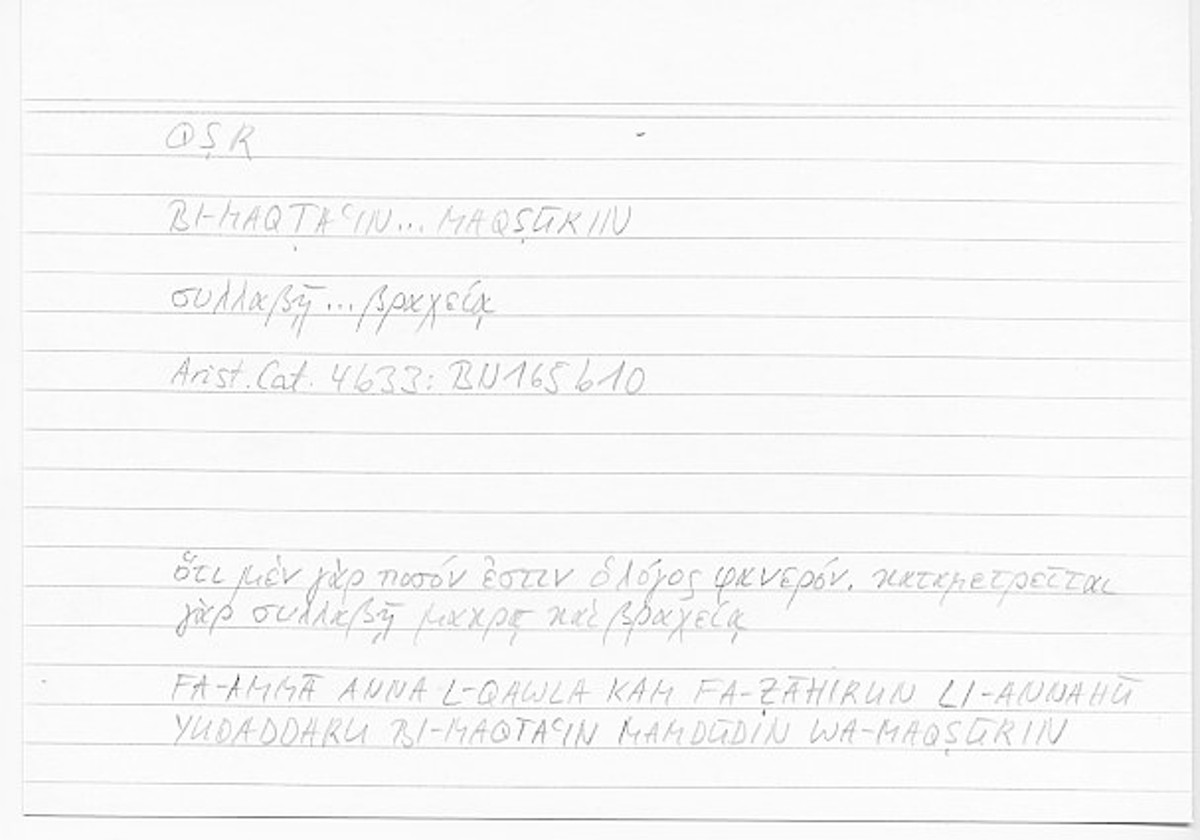 QṢR
BI-MAQṬAʿIN... MAQṢŪRIN
συλλαβῇ... βραχείᾳ
Arist. Cat. 4b33: BN165b10
ὅτι μὲν γὰρ ποσόν ἐστιν ὁ λόγος φανερόν. καταμετρεῖται
γὰρ συλλαβῇ μακρᾳ καὶ βραχείᾳ
FA-AMMĀ ANNA L-QAWLA KAM FA-ẒĀHIRUN LI-ANNAHŪ
YUQADDARU BI-MAQTAʿIN MAMDŪDIN WA-MAQṢŪRIN